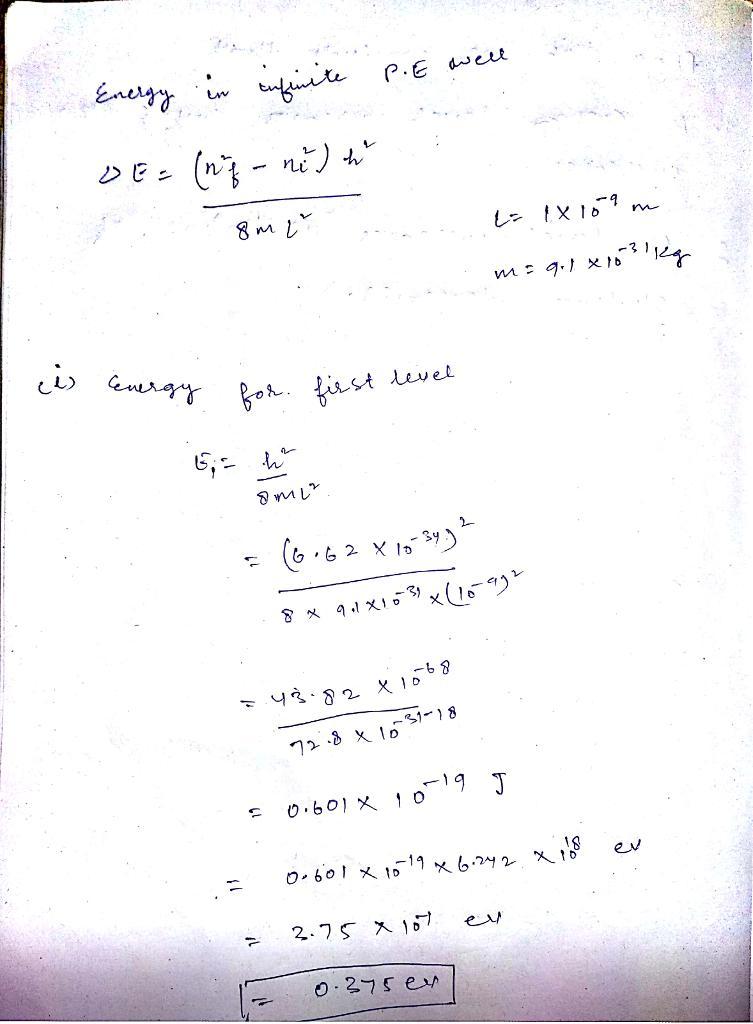 Energy in infinite P.E well
ΔE = (n²f - ni²) h²
8mL²
L= 1×10⁻⁹ m
m = 9.1 ×10⁻³¹ kg
(i) Energy for. first level
E₁= h²
8mL²
= (6.62 × 10⁻³⁴)²
8 × 9.1×10⁻³¹ ×(10⁻⁹)²
= 43.82 × 10⁻⁶⁸
72.8 × 10⁻³¹⁻¹⁸
= 0.601 × 10⁻¹⁹ J
= 0.601 × 10⁻¹⁹ × 6.242 × 10¹⁸ ev
= 3.75 × 10⁻¹ ev
= 0.375 ev